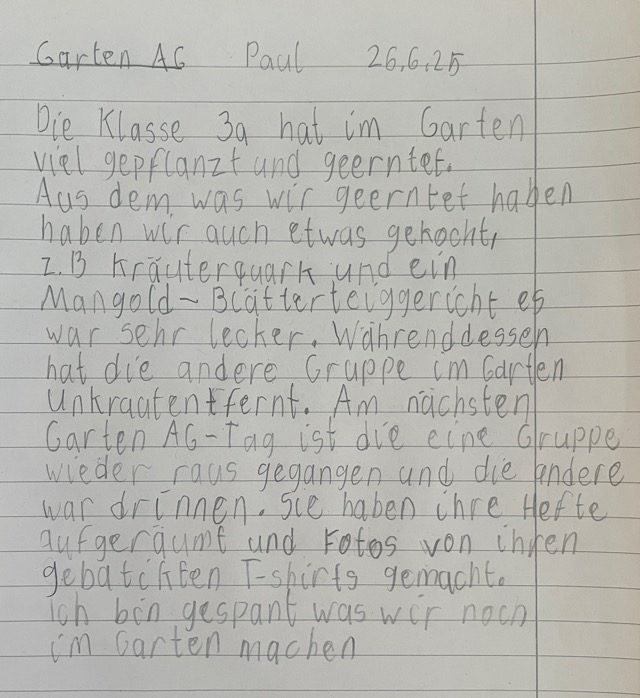 Garten AG Paul 26.6.25
Die Klasse 3a hat im Garten
viel gepflanzt und geerntet.
Aus dem was wir geerntet haben
haben wir auch etwas gekocht,
z.B Kräuterquark und ein
Mangold-Blätterteiggericht es
war sehr lecker. Währenddessen
hat die andere Gruppe im Garten
Unkraut entfernt. Am nächsten
Garten AG-Tag ist die eine Gruppe
wieder raus gegangen und die andere
war drinnen. Sie haben ihre Hefte
aufgeräumt und Fotos von ihren
gebatikten T-shirts gemacht.
Ich bin gespant was wir noch
im Garten machen